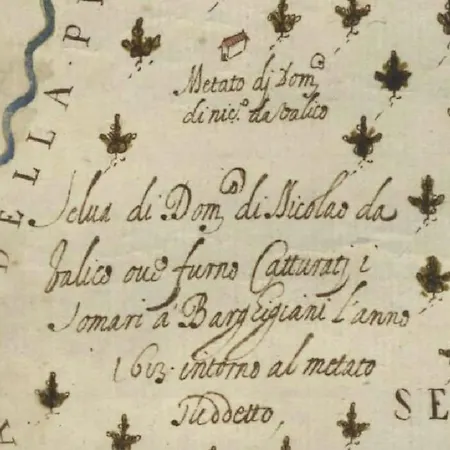 DELLA P
Metato dj Dom.co
di nic.o da Valico
Selua di Dom.co di Nicolao da
Valico oue furno Catturatj i
Somari a Barghigiani l'anno
1613. intorno al metato
Suddetto,
SE